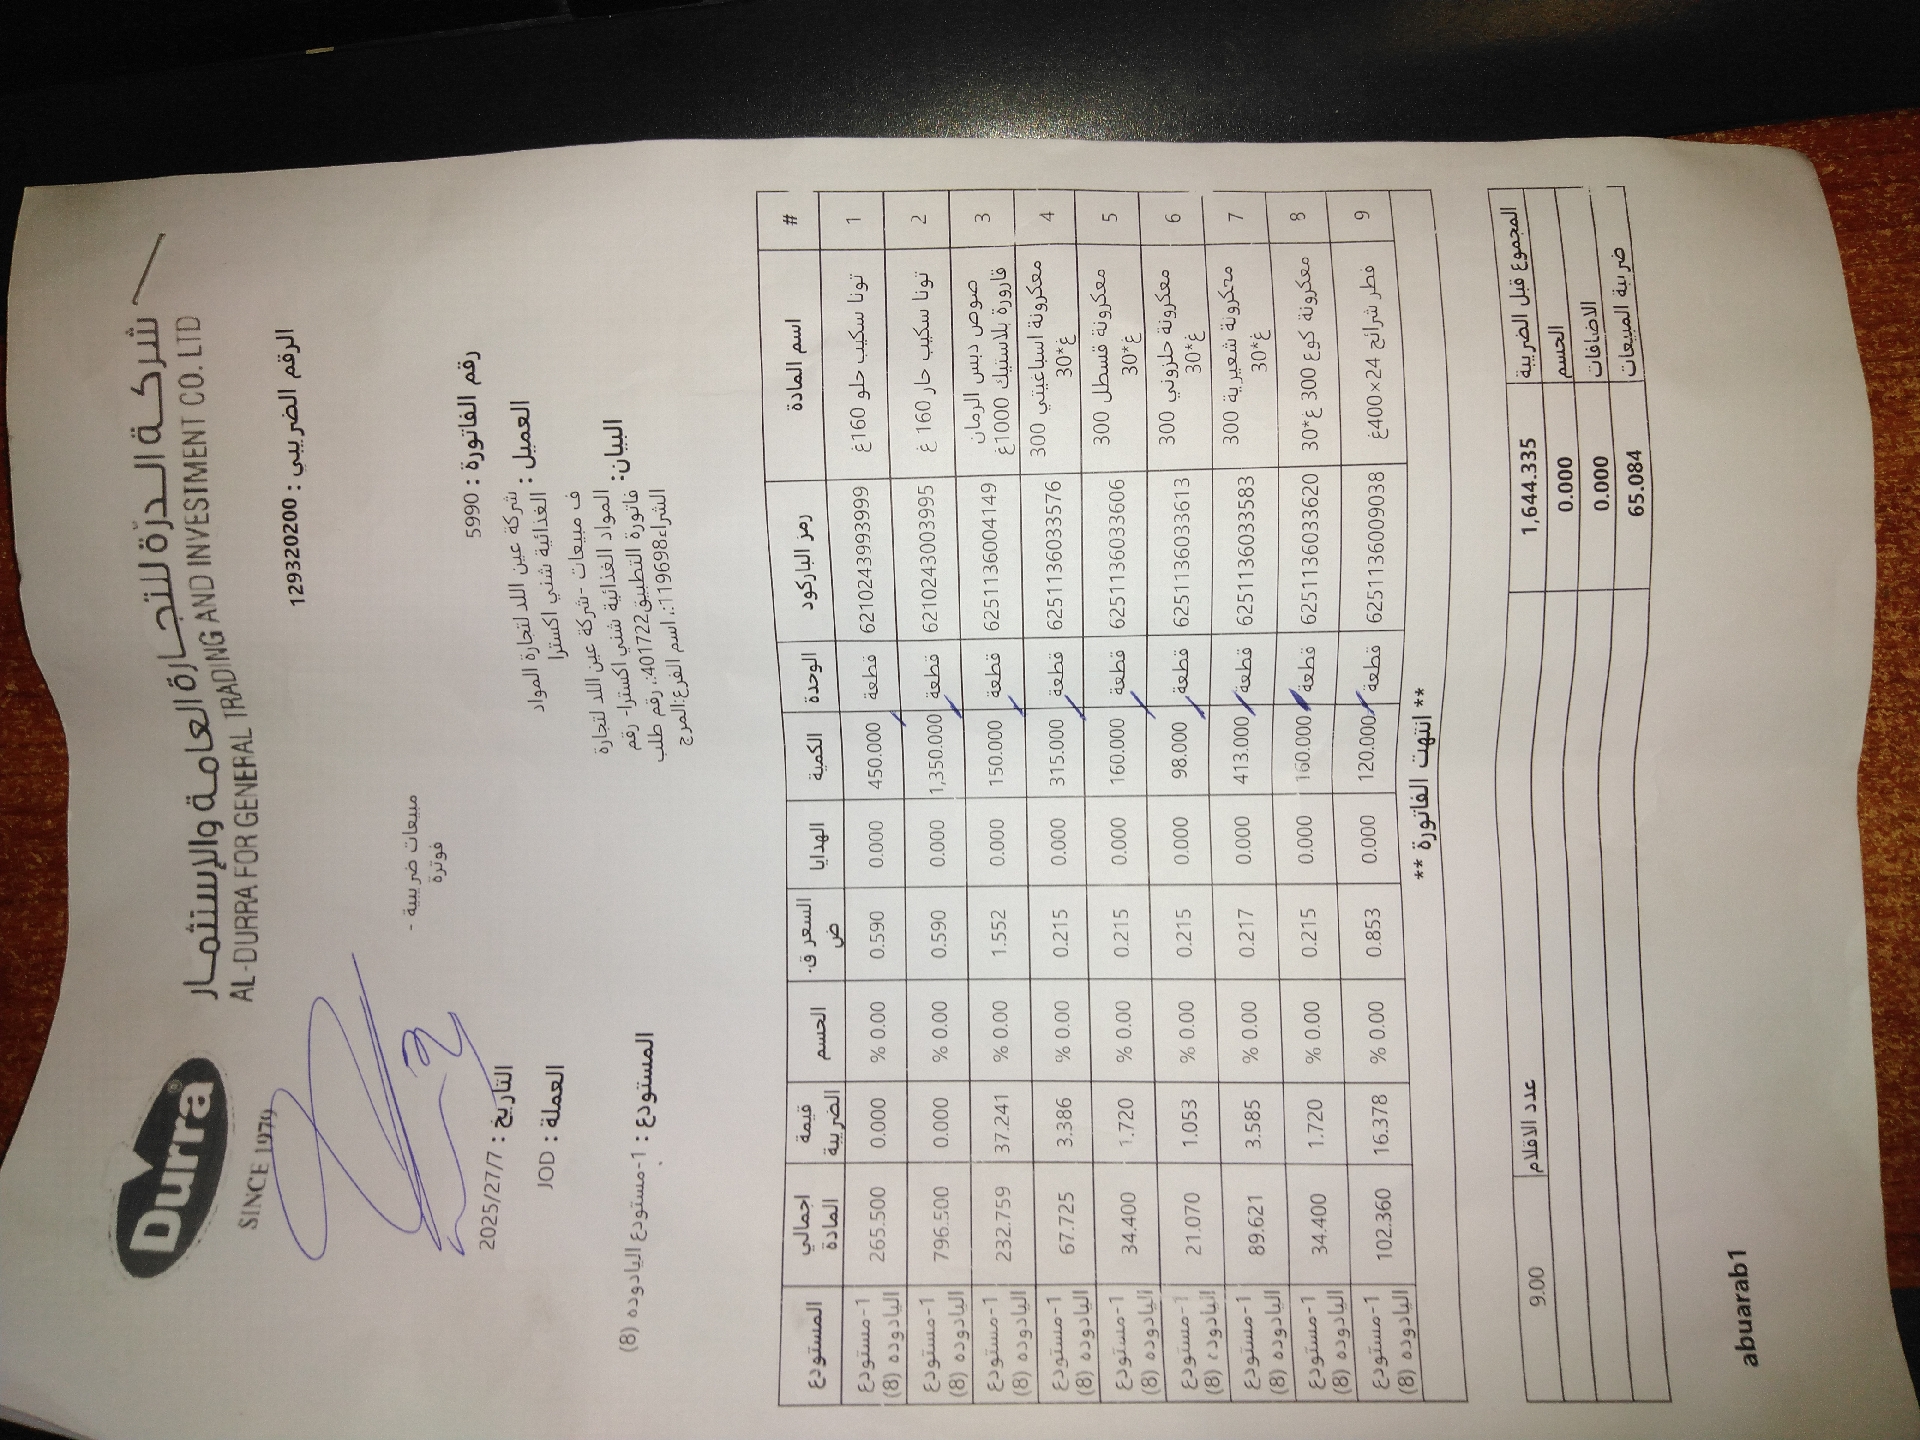 Durra®
SINCE 1979
شركة الدرة للتجارة العامة والإستثمار
AL-DURRA FOR GENERAL TRADING AND INVESTMENT CO. LTD
الرقم الضريبي : 129320200
مبيعات ضريبية -
فوترة
رقم الفاتورة : 5990
التاريخ : 2025/27/7
العميل : شركة عين اللد لتجارة المواد
الغذائية شني اكسترا
العملة : JOD
البيان: ف مبيعات -شركة عين اللد لتجارة
المواد الغذائية شني اكسترا- رقم
فاتورة التطبيق401722:، رقم طلب
الشراء119698:، اسم الفرع:المرج
المستودع : 1-مستودع اليادوده (8)
# اسم المادة رمز الباركود الوحدة الكمية الهدايا السعر ق. ض الحسم قيمة الضريبة اجمالي المادة المستودع
1 تونا سكيب حلو 160غ 6210243993999 قطعة 450.000 0.000 0.590 % 0.00 0.000 265.500 1-مستودع اليادوده (8)
2 تونا سكيب حار 160 غ 6210243003995 قطعة 1,350.000 0.000 0.590 % 0.00 0.000 796.500 1-مستودع اليادوده (8)
3 صوص دبس الرمان قارورة بلاستيك 1000غ 6251136004149 قطعة 150.000 0.000 1.552 % 0.00 37.241 232.759 1-مستودع اليادوده (8)
4 معكرونة اسباغيتي 300 غ*30 6251136033576 قطعة 315.000 0.000 0.215 % 0.00 3.386 67.725 1-مستودع اليادوده (8)
5 معكرونة قسطل 300 غ*30 6251136033606 قطعة 160.000 0.000 0.215 % 0.00 1.720 34.400 1-مستودع اليادوده (8)
6 معكرونة حلزوني 300 غ*30 6251136033613 قطعة 98.000 0.000 0.215 % 0.00 1.053 21.070 1-مستودع اليادوده (8)
7 معكرونة شعيرية 300 غ*30 6251136033583 قطعة 413.000 0.000 0.217 % 0.00 3.585 89.621 1-مستودع اليادوده (8)
8 معكرونة كوع 300 غ*30 6251136033620 قطعة 160.000 0.000 0.215 % 0.00 1.720 34.400 1-مستودع اليادوده (8)
9 فطر شرائح 24×400غ 6251136009038 قطعة 120.000 0.000 0.853 % 0.00 16.378 102.360 1-مستودع اليادوده (8)
** انتهت الفاتورة **
المجموع قبل الضريبة 1,644.335 عدد الاقلام 9.00
الحسم 0.000
الاضافات 0.000
ضريبة المبيعات 65.084
abuarab1